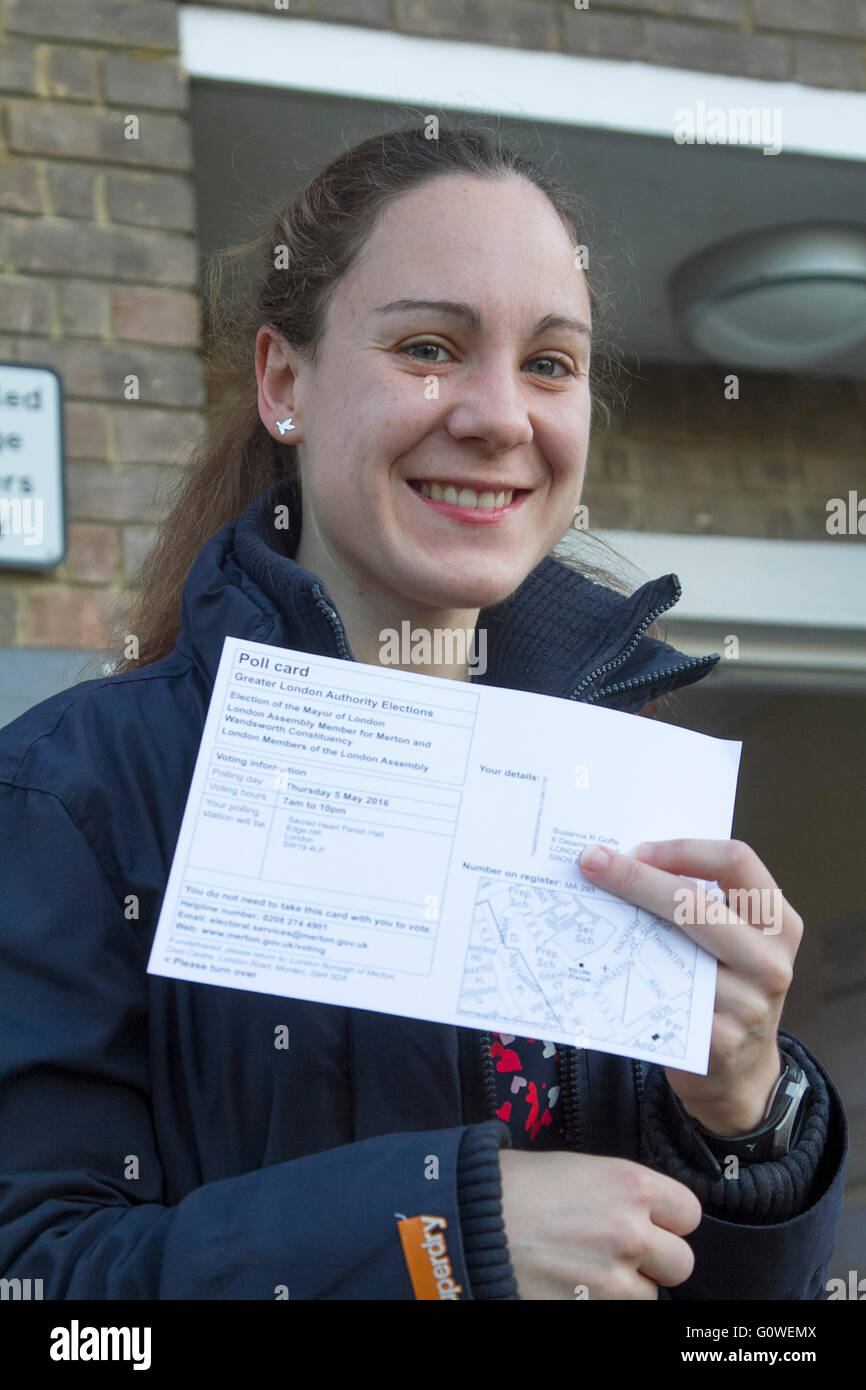 led
ge
rs
Poll card
Greater London Authority Elections
Election of the Mayor of London
London Assembly Member for Merton and
Wandsworth Constituency
London Members of the London Assembly
Voting information
Polling day Thursday 5 May 2016
Voting hours 7am to 10pm
Your polling
station will be
Sacred Heart Parish Hall
Edge Hill
London
SW19 4LP
You do not need to take this card with you to vote.
Helpline number: 0208 274 4901
Email: electoral.services@merton.gov.uk
Web: www.merton.gov.uk/voting
If undelivered, please return to: London Borough of Merton,
Civic Centre, London Road, Morden, SM4 5DX
< Please turn over
Your details:
Susanna R Goffe
6
LONDON
SW20
Number on register: MA 293
Prep
Sch
Sec
Sch
Prep
Sch
POLLING
STATION
THORNTON
ROAD
HILL
Pav
perdry
alamy stock photo
G0WEMX
www.alamy.com